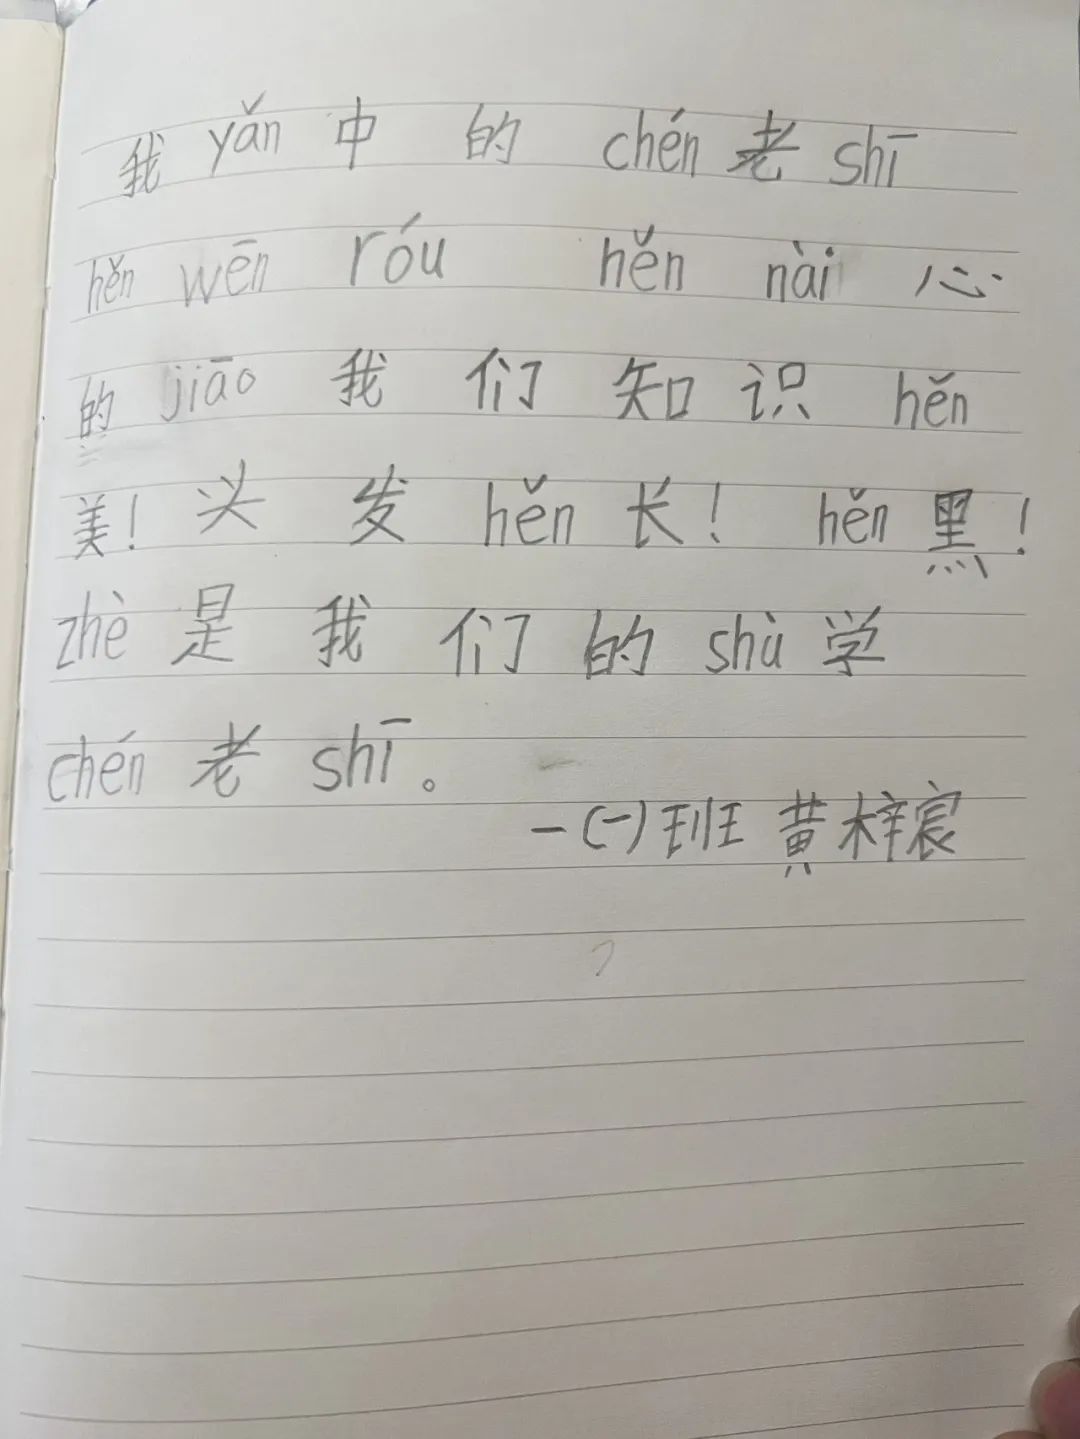 我 yǎn 中 的 chén 老 shī
hěn wēn róu hěn nài 心
的 jiāo 我 们 知 识 hěn
美! 头 发 hěn 长! hěn 黑!
zhè 是 我 们 的 shù 学
chén 老 shī。
一(一)班 黄梓宸